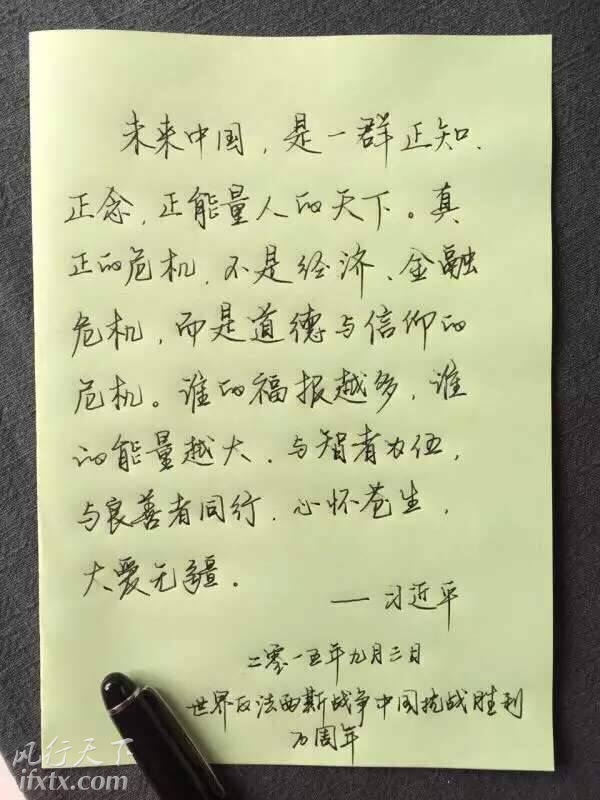 未来中国，是一群正知、
正念、正能量人的天下。真
正的危机，不是经济、金融
危机，而是道德与信仰的
危机。谁的福报越多，谁
的能量越大。与智者为伍，
与良善者同行，心怀苍生，
大爱无疆。
——习近平
二零一五年九月三日
世界反法西斯战争中国抗战胜利
70周年
风行天下
ifxtx.com